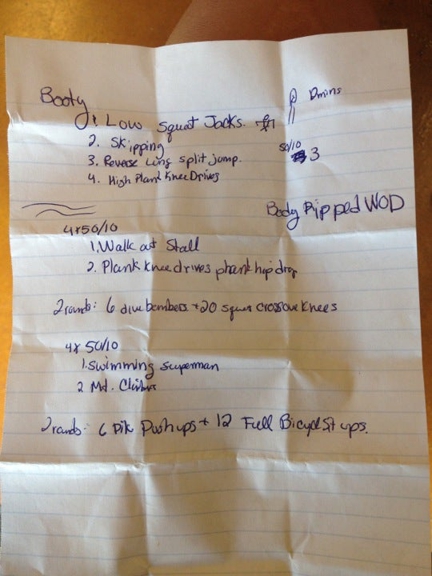 Booty
1. Low Squat Jacks.
2. Skipping
3. Reverse Lung split jump.
4. High Plank Knee Drives
mins
50/10
3
Body Ripped WOD
4x50/10
1. Walk out Stall
2. Plank knee drives plank hip drop
2 rounds: 6 dive bombers + 20 squat crossover knees
4x 50/10
1. Swimming superman
2 Mt. Climbers
2 rounds: 6 Pik Push ups + 12 Full Bicycl Sit ups.